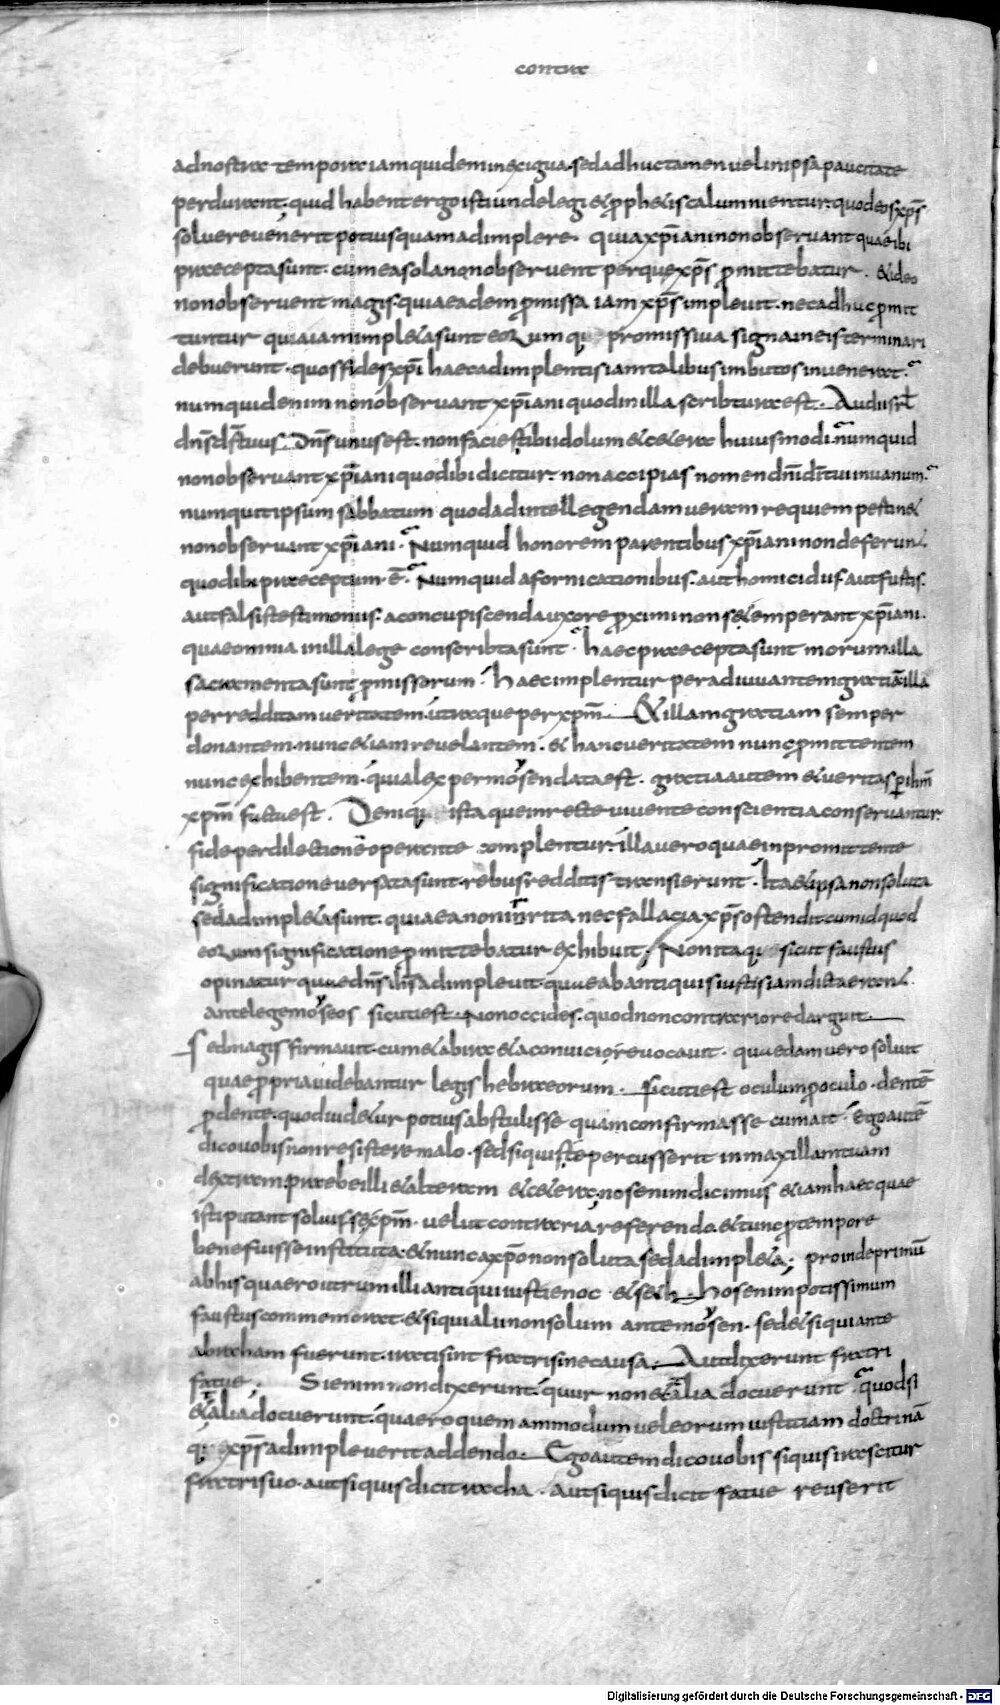 contra
ad nostra tempora iam quidem in exigua. sed adhuc tamen uel in ipsa paucitate
perdurant. quid habent ergo isti unde legi et prophetis calumnientur. quod eos xp̄s
soluere uenerit potius quam adimplere. quia xp̄iani non obseruant quae ibi
praecepta sunt. cum ea sola non obseruent per que xp̄s promittebatur. et ideo
non obseruent magis quia eadem promissa iam xp̄s impleuit. nec adhuc promit
tuntur quia iam impleta sunt eorum promissiua signa in eis terminari
debuerunt. quos fides xp̄i haec adimplentis iam talibus imbutos inuenerat.
numquid enim non obseruant xp̄iani quod in illa scribtura est. Audi isrl̄
dn̄s ds̄ tuus. Dn̄s unus est. non facies tibi idolum et cetera huiusmodi. numquid
non obseruant xp̄iani quod ibi dicitur. non accipias nomen dn̄i dī tui in uanum.
numquit ipsum sabbatum quod ad intellegendam ueram requiem pertinet
non obseruant xp̄iani. Numquid honorem parentibus xp̄iani non deferunt.
quod ibi praeceptum ē. Numquid a fornicationibus. aut homicidiis aut furtis.
aut falsis testimoniis. a concupiscenda uxore proximi non se temperant xp̄iani.
quae omnia in illa lege conscribta sunt. haec praecepta sunt morum illa
sacramenta sunt promissorum. haec implentur per adiuuantem gratiā illa
per redditam ueritatem. utraque per xp̄m. Et illam gratiam semper
donantem. nunc etiam reuelantem. et hanc ueritatem nunc promittentem
nunc exhibentem. quia lex per mosen data est. gratia autem et ueritas per ihm̄
xp̄m facta est. Denique ista que in recte uiuente conscientia conseruantur.
fide per dilectionē operante complentur. illa uero quae in promittente
significatione uersata sunt. rebus redditis transierunt. Ita et ipsa non soluta
sed adimpleta sunt. quia ea non inrita nec fallacia xp̄s ostendit cum id quod
eorum significatione promittebatur exhibuit. Non itaque sicut faustus
opinatur quaedam dn̄s ihs̄ adimpleuit. quae ab antiquis iustis iam dicta erant.
ante lege moyseos sicuti est. Non occides. quod non contrario redarguit.
Sed magis firmauit. cum et ab ira et a conuicio reuocauit. quaedam uero soluit
quae propria uidebantur legis hebraeorum. Sicuti est oculum pro oculo. dentē
pro dente. quod uidetur potius abstulisse quam confirmasse cum ait. Ego autē
dico uobis non resistere malo. sed si quis te percusserit in maxillam tuam
dextram praebe illi et alteram et cetera. nos enim dicimus etiam haec quae
isti putant soluisse xp̄m. uelut contraria referendo. et tunc pro tempore
bene fuisse instituta. et nunc a xp̄o non soluta sed adimpleta; proinde primū
ab his quaero utrum illi antiqui iusti enoc et seth. hos enim potissimum
faustus commemorat. et si qui alii non solum ante moysen. sed et si qui ante
abraham fuerunt. irati sint fratri sine causa. Aut dixerunt fratri
fatue; Si enim non dixerunt. quur non et alia docuerunt. quod si
et alia docuerunt. quaero quem ammodum uel eorum iustitiam doctrinā
que xp̄s adimpleuerit addendo. Ego autem dico uobis si quis irascitur
fratri suo. aut si quis dicit racha. aut si quis dicit fatue reus erit
Digitalisierung gefördert durch die Deutsche Forschungsgemeinschaft - DFG